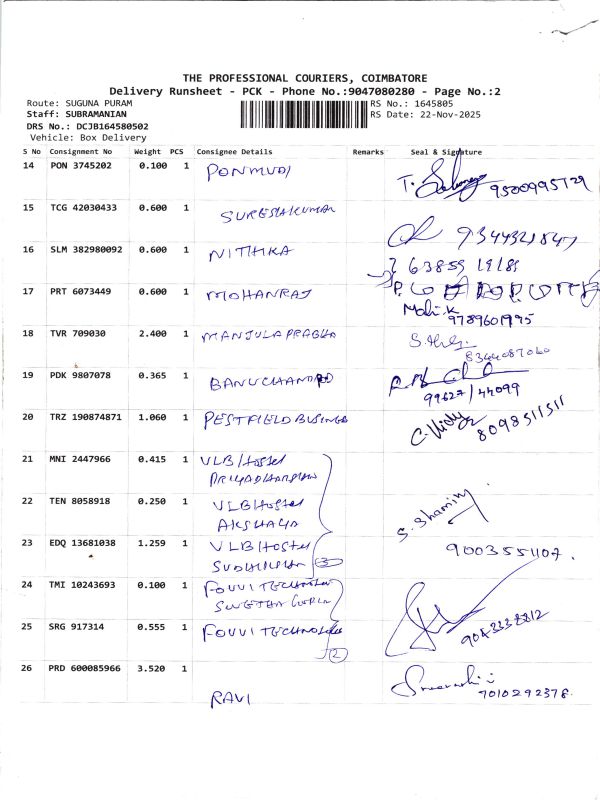 THE PROFESSIONAL COURIERS, COIMBATORE
Delivery Runsheet - PCK - Phone No.:9047080280 - Page No.:2
Route: SUGUNA PURAM
RS No.: 1645805
Staff: SUBRAMANIAN
RS Date: 22-Nov-2025
DRS No.: DCJB164580502
Vehicle: Box Delivery
S No Consignment No Weight PCS Consignee Details Remarks Seal & Signature
14 PON 3745202 0.100 1 PONMUDI
15 TCG 42030433 0.600 1 SURESHKUMAR
16 SLM 382980092 0.600 1 NITHIKA
17 PRT 6073449 0.600 1 MOHANRAJ
9789601995
18 TVR 709030 2.400 1 MANJULA PRABHA
8344087060
19 PDK 9807078 0.365 1 BANUCHAND
99627/44099
20 TRZ 190874871 1.060 1 PESTFIELD BUSINESS
8098511511
21 MNI 2447966 0.415 1 VLB Hostel
PRIYADHARSHAN
22 TEN 8058918 0.250 1 VLB Hostel
AKSHAYA
S. Shamin
23 EDQ 13681038 1.259 1 VLB Hostel
9003551107.
3
24 TMI 10243693 0.100 1 FOUVI TECHNOLO
SWETHA
25 SRG 917314 0.555 1 FOUVI TECHNOLO
9043338812
2
26 PRD 600085966 3.520 1
RAVI
7010292378.